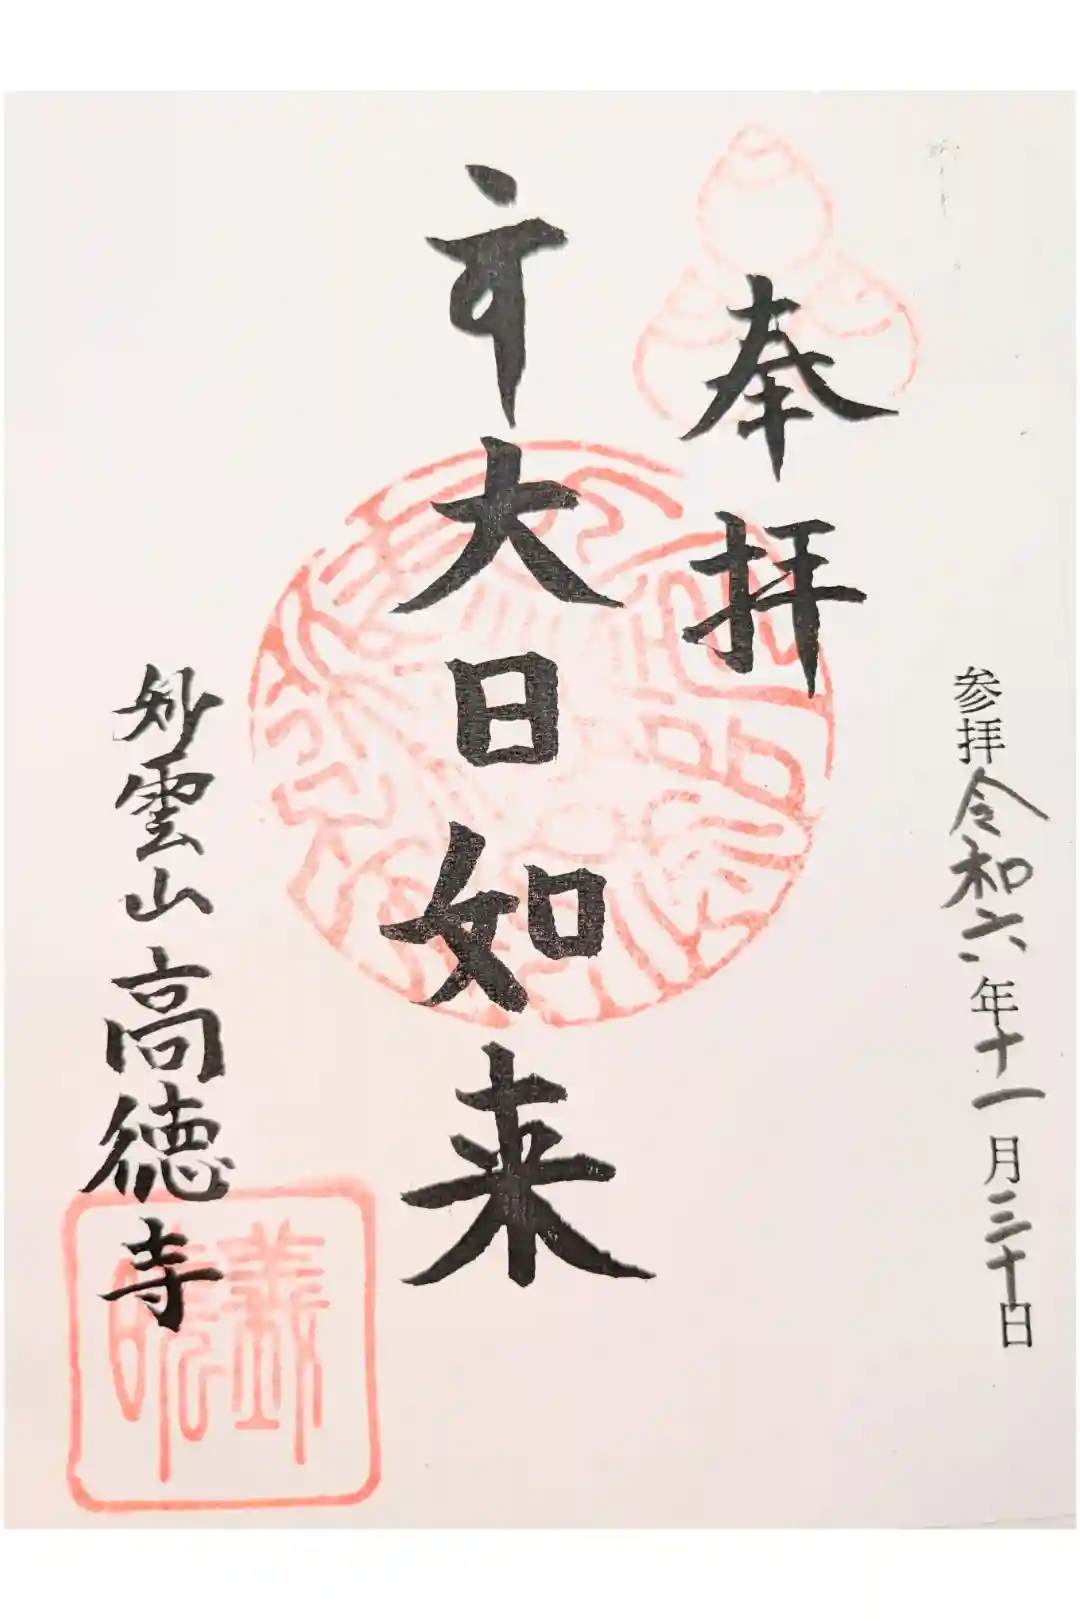 参拝令和六年十一月三十日
奉拝
大日如来
妙雲山高徳寺